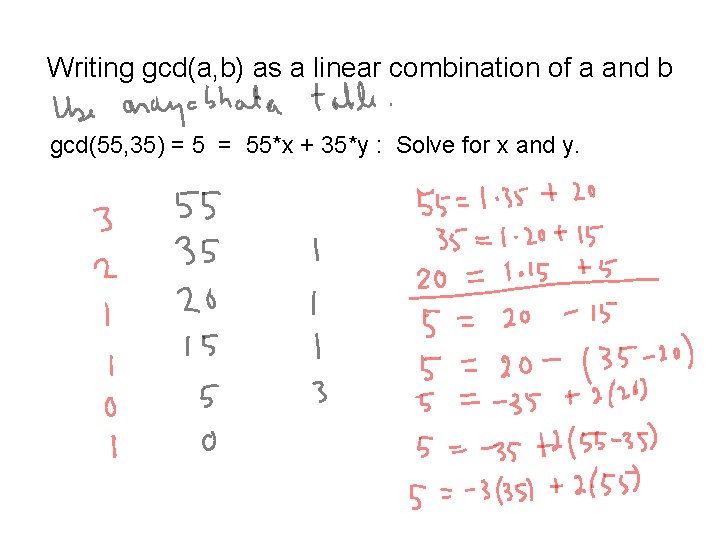 Writing gcd(a,b) as a linear combination of a and b
Use aryabhata table.
gcd(55,35) = 5 = 55*x + 35*y : Solve for x and y.
3 55
2 35 1
1 20 1
1 15 1
0 5 3
1 0
55 = 1.35 + 20
35 = 1.20 + 15
20 = 1.15 + 5
5 = 20 - 15
5 = 20 - (35-20)
5 = -35 + 2(20)
5 = -35 + 2(55-35)
5 = -3(35) + 2(55)